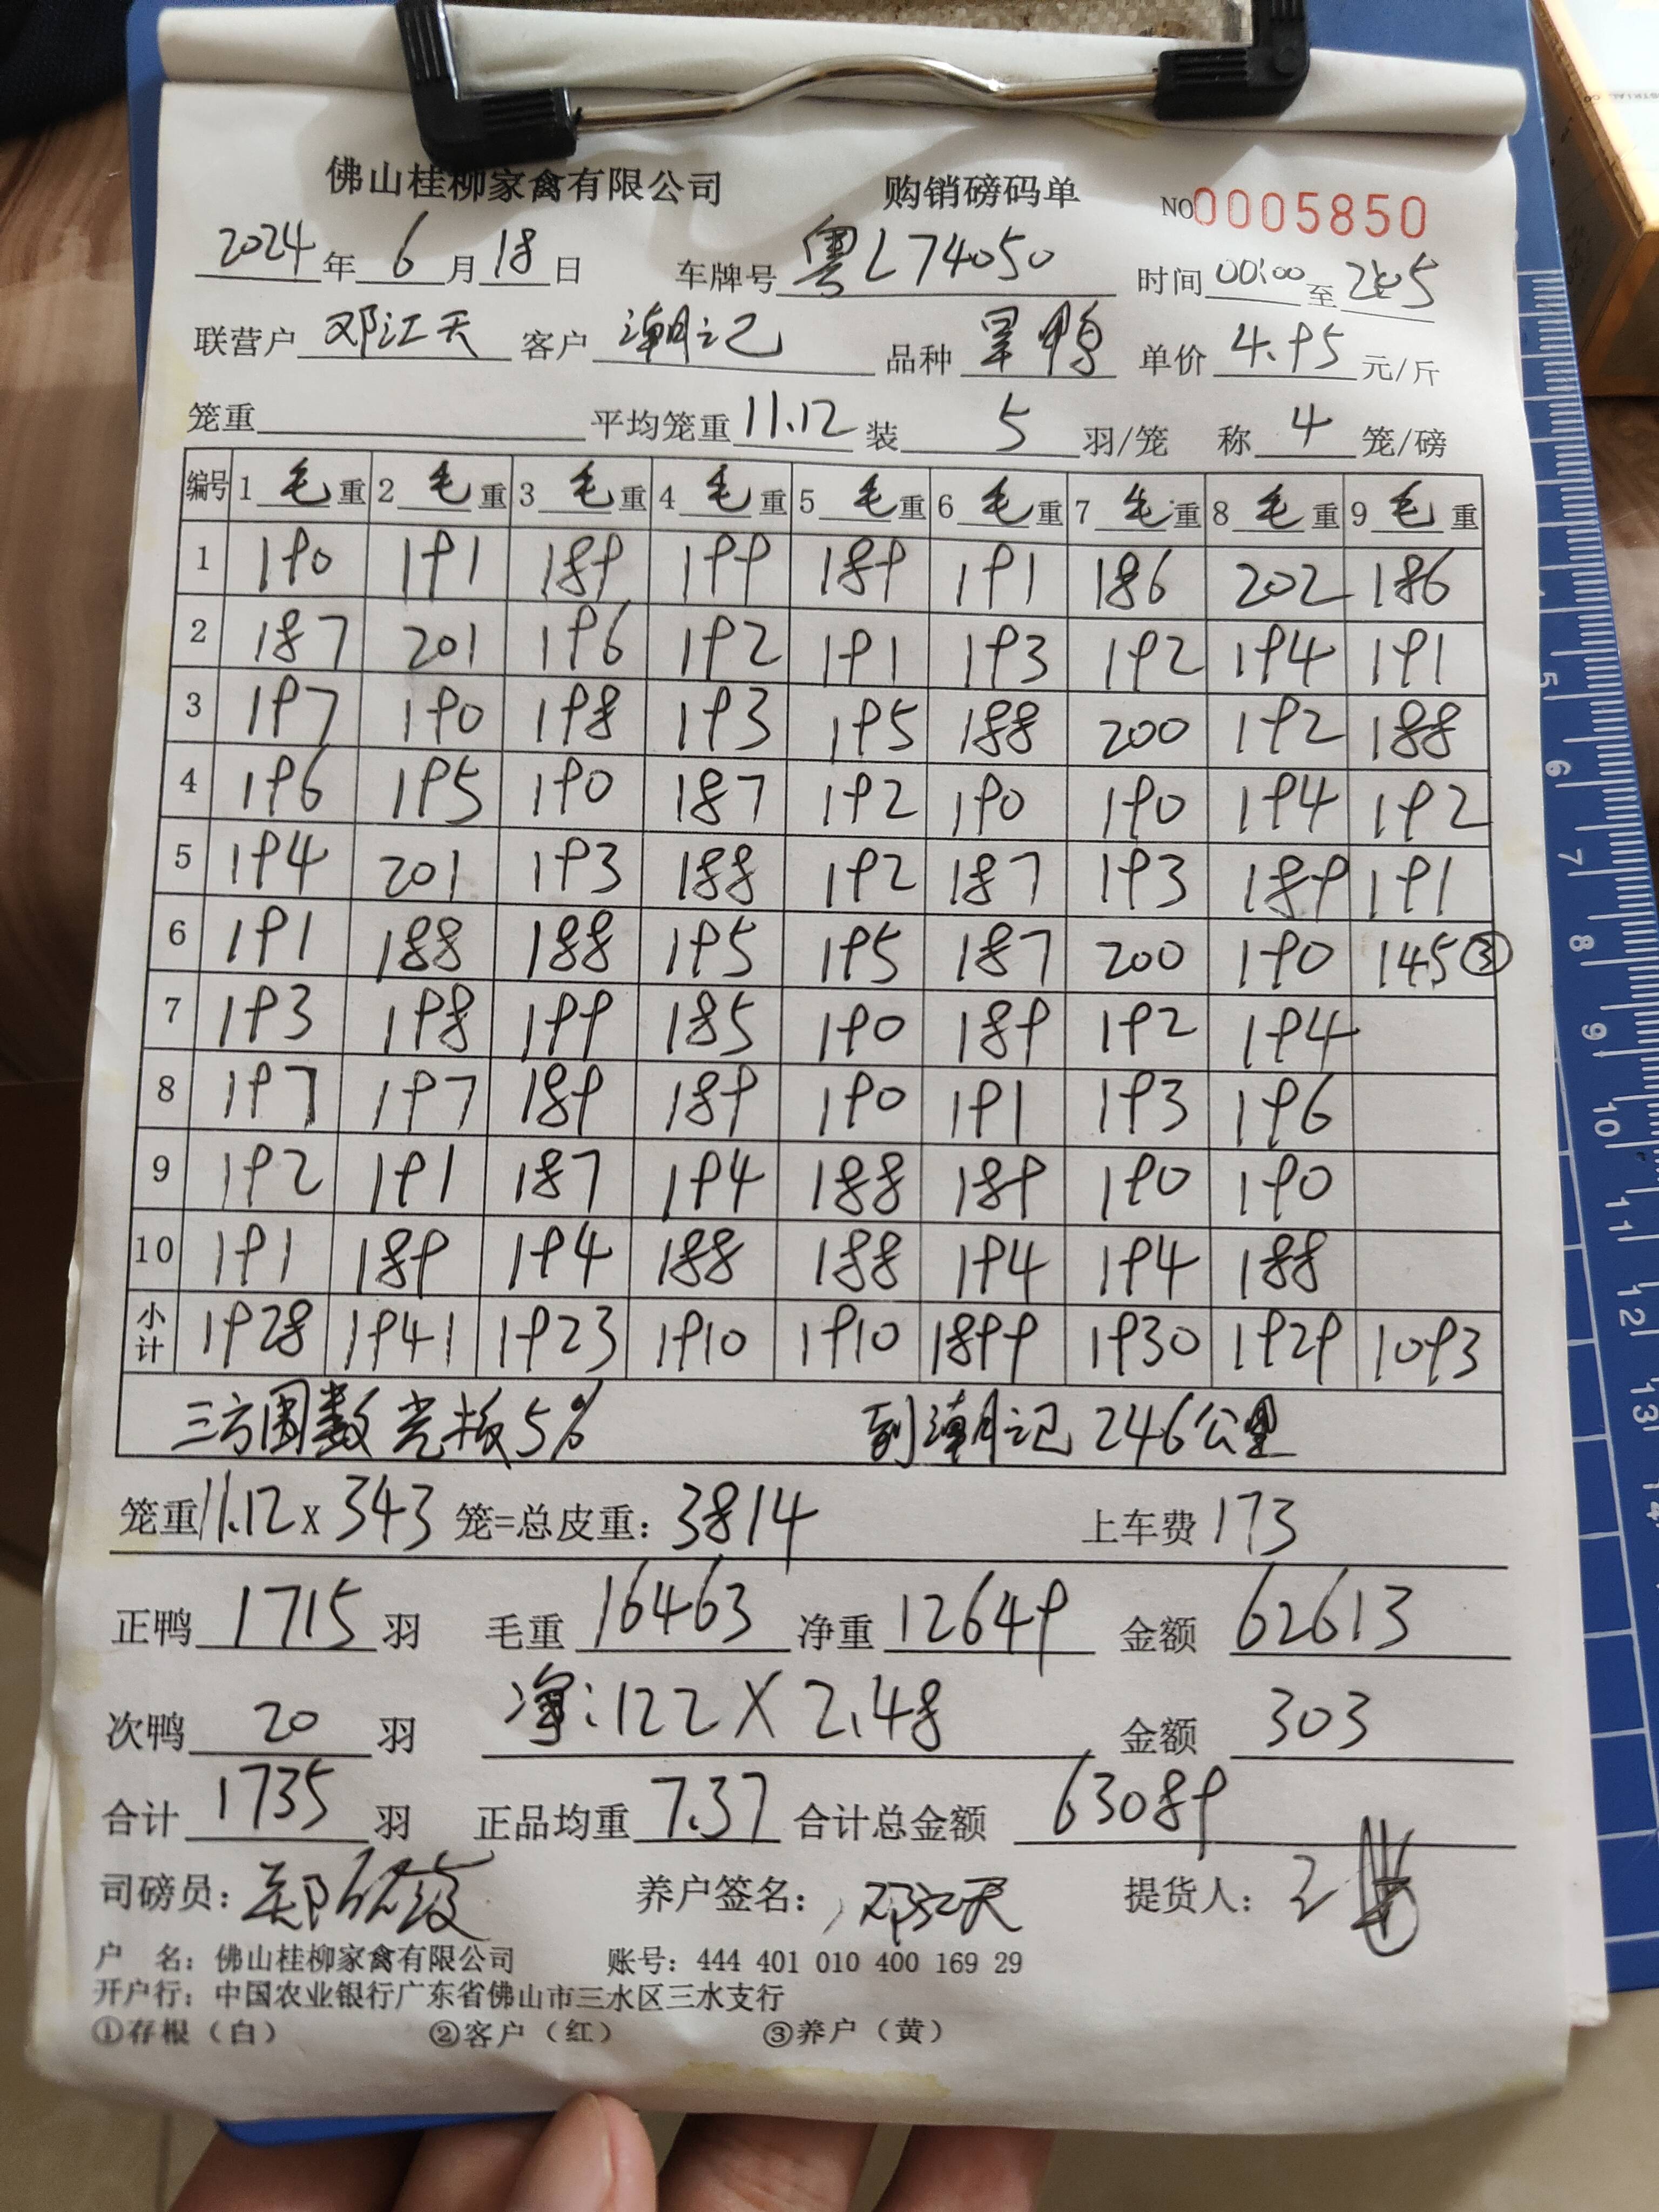 佛山桂柳家禽有限公司 购销磅码单 NO0005850
2024年6月18日 车牌号粤L74050 时间00:00至2:05
联营户 邓江天 客户 潮记 品种 旱鸭 单价 4.95 元/斤
笼重 平均笼重 11.12 装 5 羽/笼 称 4 笼/磅
编号 1毛重 2毛重 3毛重 4毛重 5毛重 6毛重 7毛重 8毛重 9毛重
1 190 191 189 199 189 191 186 202 186
2 187 201 196 192 191 193 192 194 191
3 197 190 198 193 195 188 200 192 188
4 196 195 190 187 192 190 190 194 192
5 194 201 193 188 192 187 193 189 191
6 191 188 188 195 195 187 200 190 145③
7 193 198 199 185 190 189 192 194
8 197 197 189 189 190 191 193 196
9 192 191 187 194 188 189 190 190
10 191 189 194 188 188 194 194 188
小计 1928 1941 1923 1910 1910 1899 1930 1929 1093
三方围数 光板5% 到潮记246公里
笼重11.12x343笼=总皮重:3814 上车费173
正鸭 1715 羽 毛重 16463 净重 12649 金额 62613
次鸭 20 羽 净:122X2.48 金额 303
合计 1735 羽 正品均重 7.37 合计总金额 63089
司磅员: 养户签名:邓江天 提货人:
户 名:佛山桂柳家禽有限公司 账号:444 401 010 400 169 29
开户行:中国农业银行广东省佛山市三水区三水支行
①存根(白) ②客户(红) ③养户(黄)
5
6
7
8
9
10
11
12
13
14